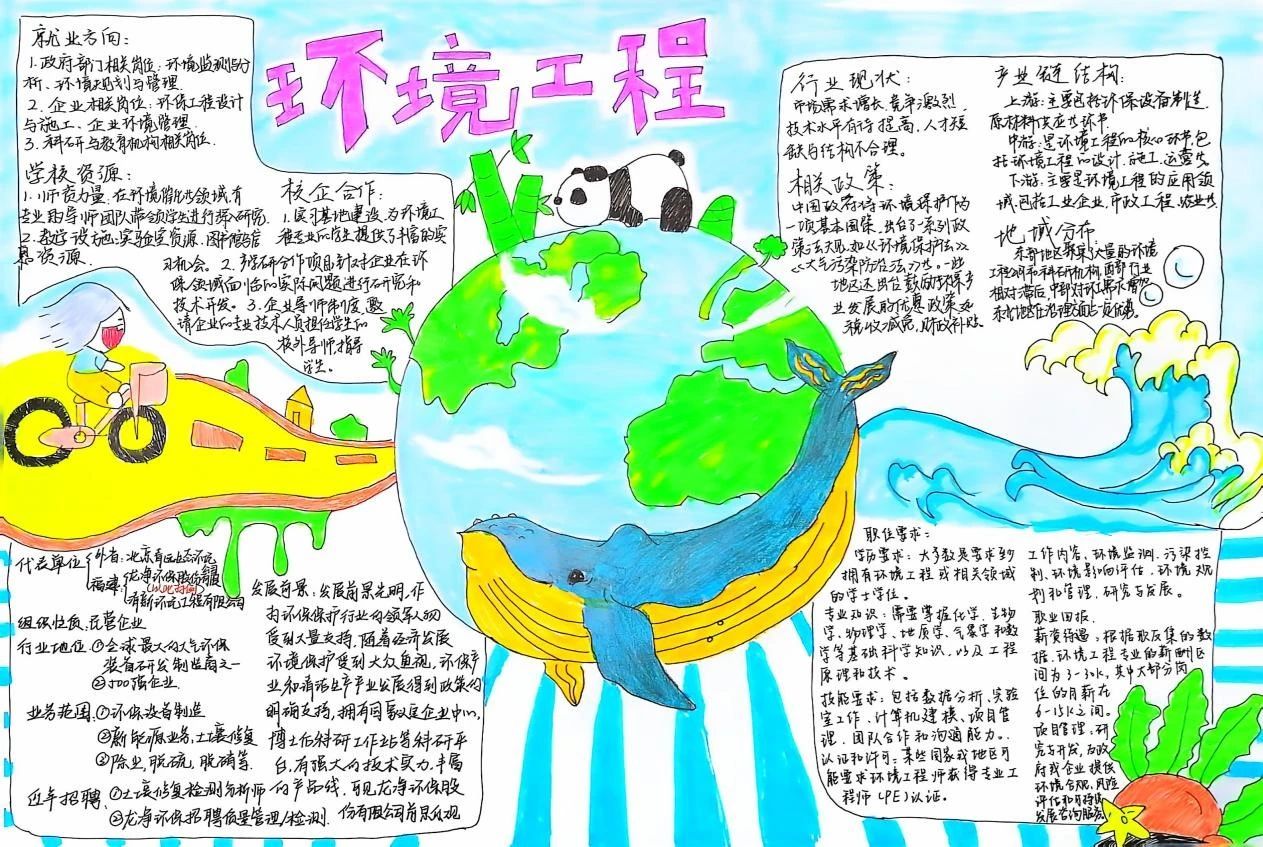 环境工程
就业方向：
1.政府部门相关岗位：环境监测与分
析、环境规划与管理.
2.企业相关岗位：环保工程设计
与施工、企业环境管理
3.科研与教育机构相关岗位.
学校资源：
1.师资力量：在环境领域有
专业的导师团队带领学生进行深入研究.
2.教学设施：实验室资源、图书馆与信
息资源.
校企合作：
1.实习基地建设，为环境工
程专业的学生提供了丰富的实
习机会。2.产学研合作项目针对企业在环
保领域面临的实际问题进行研究和
技术开发。3.企业导师制度，邀
请企业的专业技术人员担任学生的
校外导师，指导
学生。
行业现状：
市场需求增长，竞争激烈，
技术水平有待提高，人才短
缺与结构不合理。
相关政策：
中国政府将环境保护作为
一项基本国策，出台了一系列政
策法规，如《环境保护法》
《大气污染防治法》等。一些
地区还出台鼓励环保产
业发展的优惠政策，如
税收减免，财政补贴.
产业链结构：
上游：主要包括环保设备制造、
原材料供应等环节.
中游：是环境工程的核心环节，包
括环境工程的设计、施工、运营等
下游：主要是环境工程的应用领
域包括工业企业，市政工程，农业等
地域分布
东部地区聚集了大量的环境
工程公司和科研机构，西部行业
相对滞后，中部对环工需求增加
代表单位
外省：北京
福建：龙净环保股份有限
有新环境工程有限公司
组织性质：民营企业
行业地位 ①全球最大的大气环保
装备研发制造商之一
②500强企业.
业务范围：①环保设备制造
②新能源业务，土壤修复
③除尘，脱硫，脱硝等.
近年招聘 ①土壤修复检测分析师
②龙净环保招聘质量管理/检测.
发展前景：发展前景光明，作
为环保保护行业的领军人物
受到大量支持，随着经济发展
环境保护受到大众重视，环保产
业和清洁生产产业发展得到政策的
明确支持，拥有国家认定企业中心，
博士后科研工作站等科研平
台，有强大的技术实力，丰富
的产品线，可见龙净环保股
份有限公司前景乐观
职位要求：
学历要求：大多数是要求到
拥有环境工程或相关领域
的学士学位。
专业知识：需要掌握化学、生物
学、物理学、地质学、气象学和数
学等基础科学知识，以及工程
原理和技术。
技能要求：包括数据分析、实验
室工作、计算机建模、项目管
理、团队合作和沟通能力。
认证和许可：某些国家或地区可
能要求环境工程师获得专业工
程师（PE）认证。
工作内容：环境监测、污染控
制、环境影响评估、环境规
划和管理、研究与发展。
职业回报.
薪资待遇：根据职友集的数
据，环境工程专业的薪酬区
间为3-30K，其中大部分岗
位的月薪在
6-15K之间。
项目管理，研
究与开发，为政
府或企业提供
环境合规、风险
评估和可持续
发展咨询服务